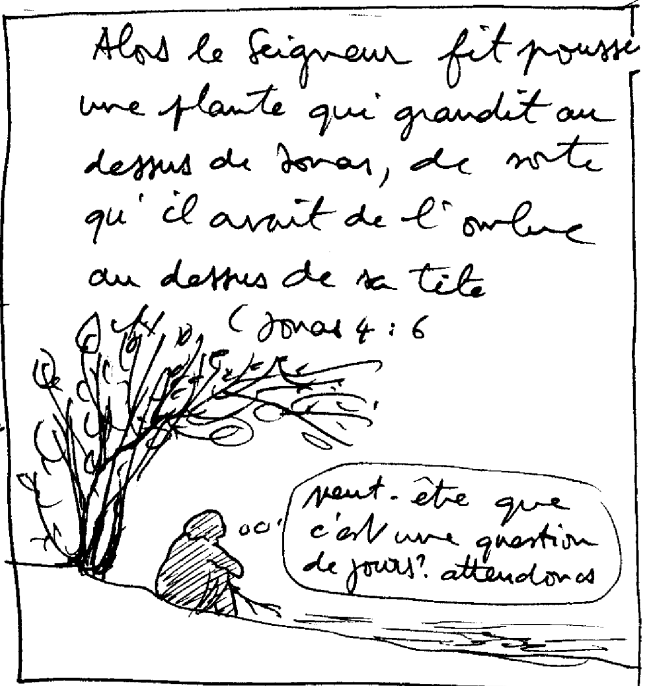 Alors le Seigneur fit pousse
une plante qui grandit au
dessus de Jonas, de sorte
qu'il avait de l'ombre
au dessus de sa tête
(Jonas 4 : 6
peut-être que
c'est une question
de jours? attendons